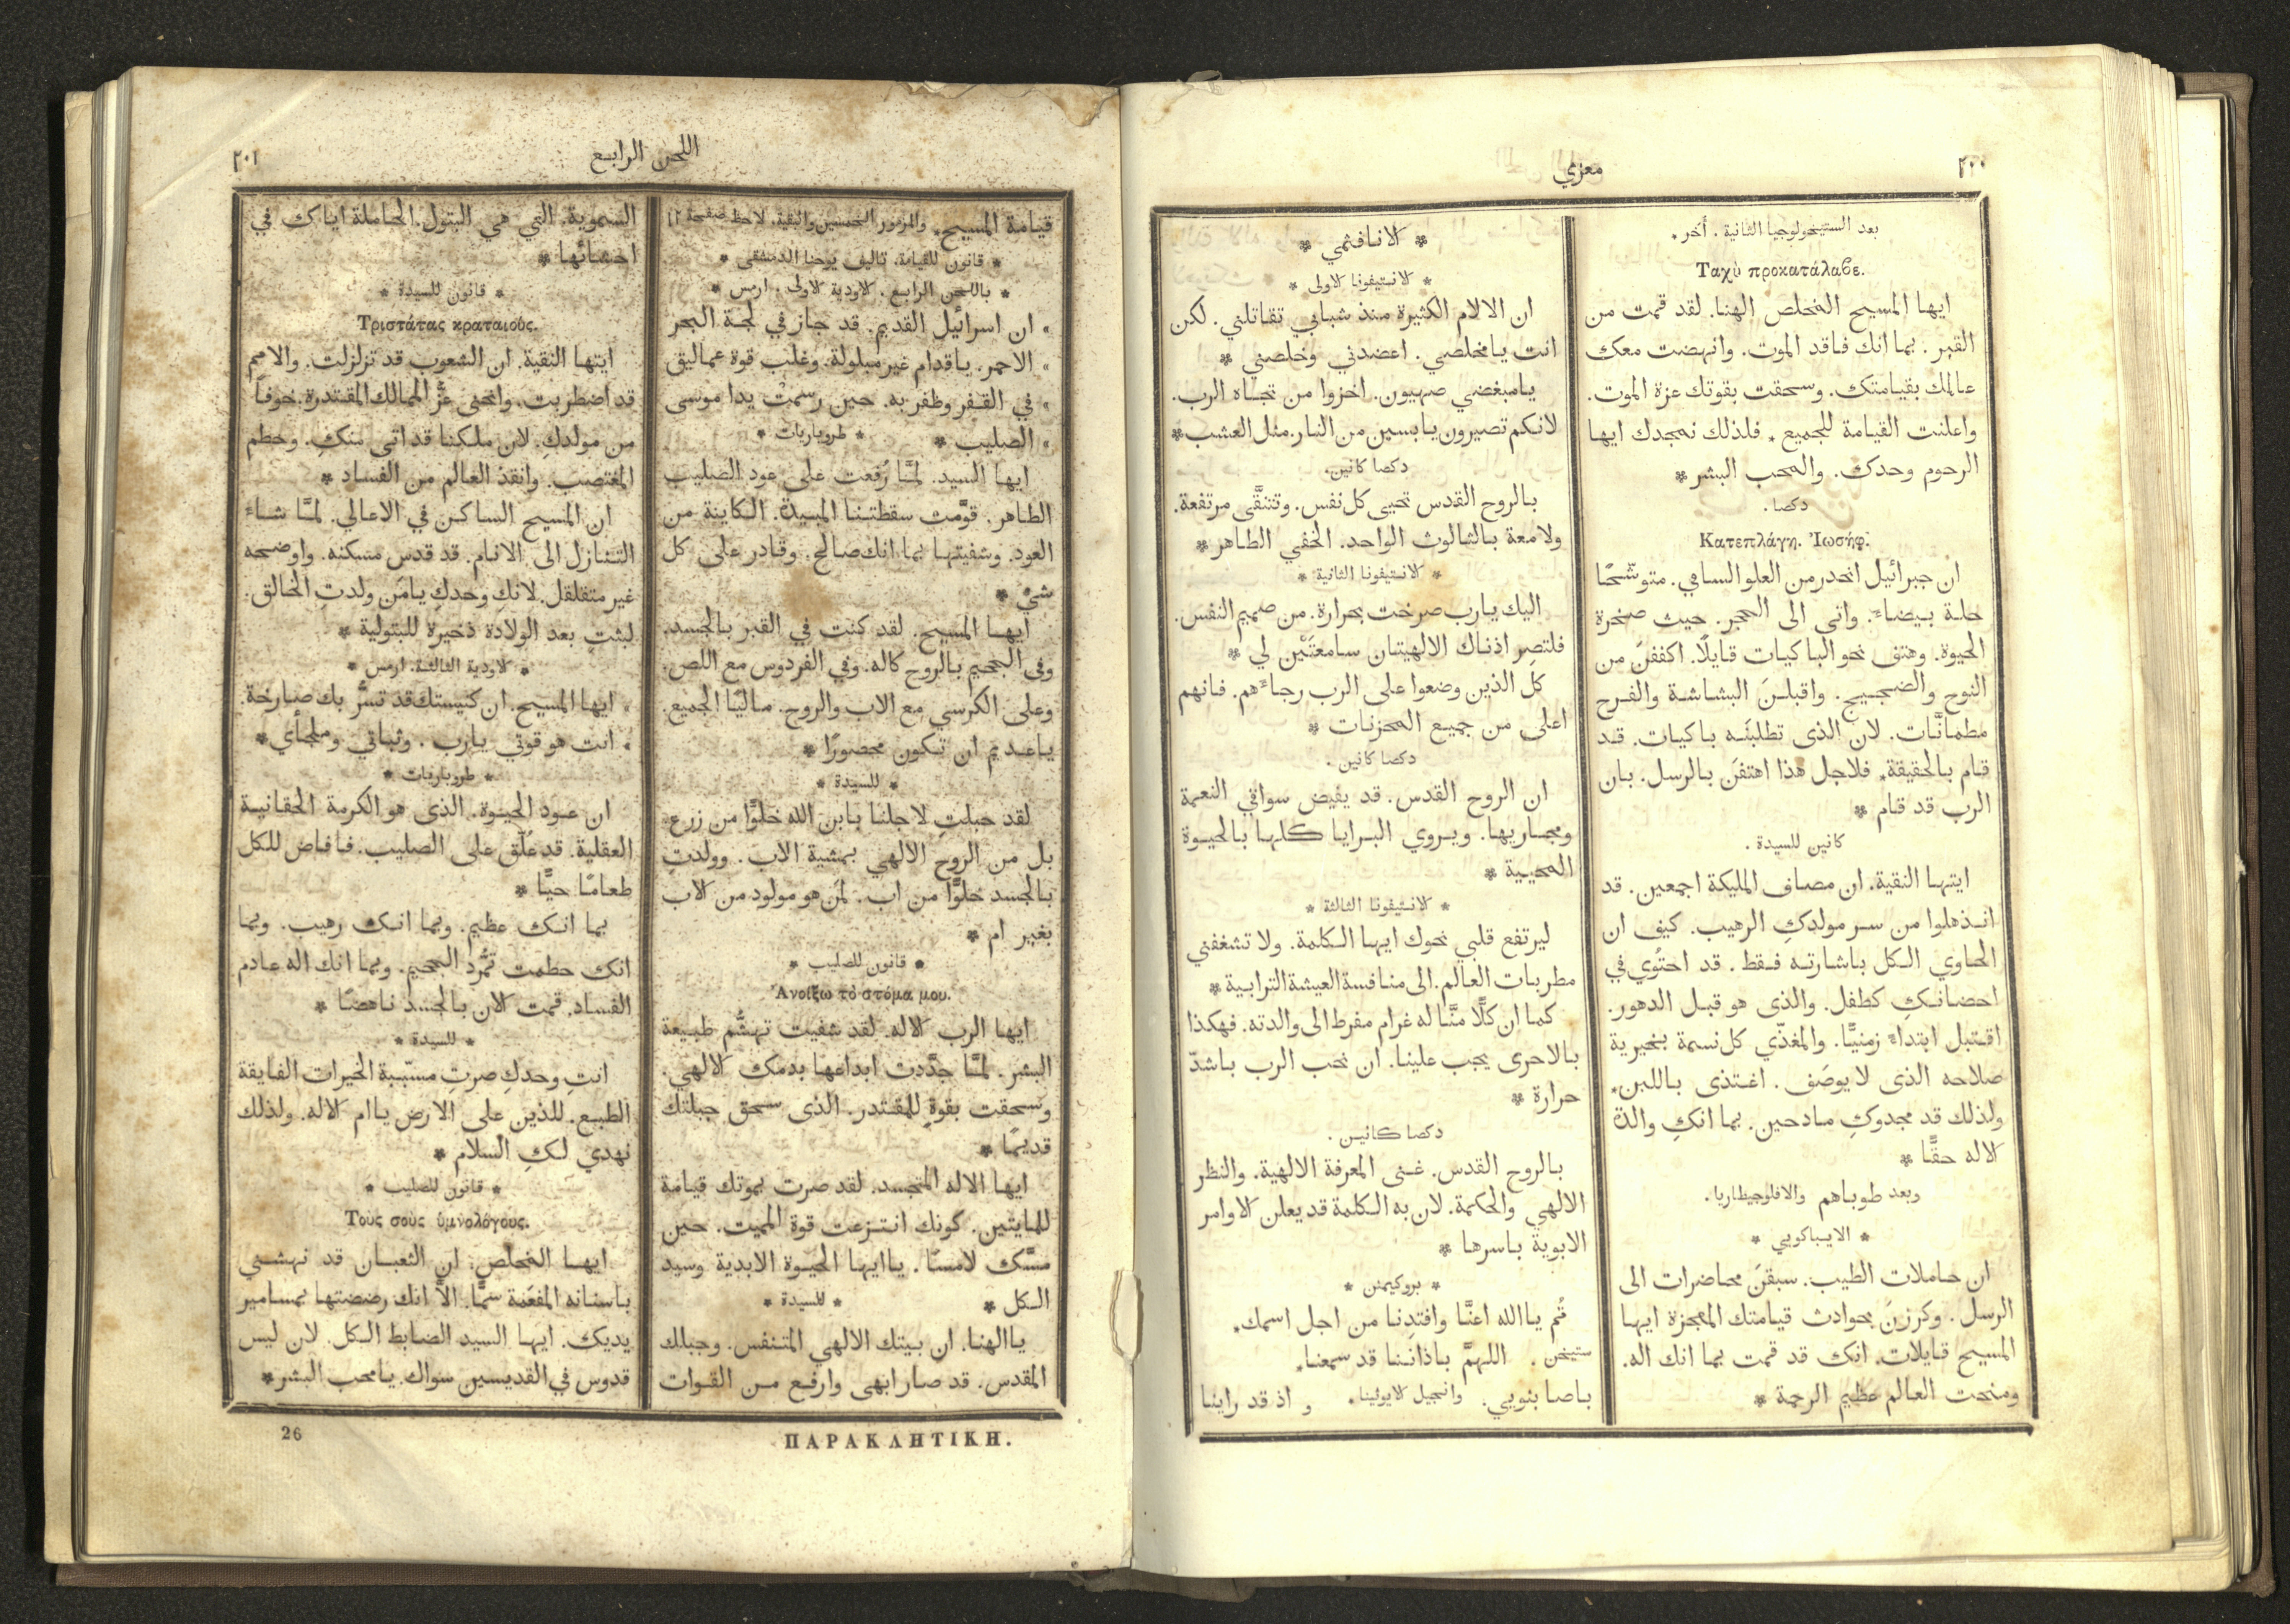 ٢٠٠
معزي
بعد الستيخولوجيا الثانية . أخر .
Ταχὺ προκατάλαβε.
ايها المسيح المخلص الهنا. لقد قمت من
القبر . بما انك فاقد الموت. وانهضت معك
عالمك بقيامتك. وسحقت بقوتك عزة الموت.
واعلنت القيامة للجميع * فلذلك نمجدك ايها
الرحوم وحدك. والمحب البشر *
دكصا .
Κατεπλάγη. Ἰωσήφ.
ان جبرائيل انحدر من العلو السامي . متوشّحًا
حلة بيضاء. واتى الى الحجر. حيث صخرة
الحيوة. وهتف نحو الباكيات قايلًا. اكففنَ من
النوح والضجيج. واقبلنَ البشاشة والفرح
مطمانَّات. لان الذى تطلبنَه باكيات. قد
قام بالحقيقة* فلاجل هذا اهتفنَ بالرسل. بان
الرب قد قام *
كانين للسيدة .
ايتها النقية. ان مصاف المليكة اجمعين . قد
انذهلوا من سر مولدكِ الرهيب. كيف ان
الحاوي الكل باشارته فقط . قد احتُوي في
احضانكِ كطفل. والذى هو قبل الدهور.
اقتبل ابتداء زمنيًّا. والمغذّي كل نسمة بخيرية
صلاحه الذى لا يوصَف . اغتذى باللبن*
ولذلك قد مجدوكِ مادحين. بما انكِ والدة
الاله حقًّا *
وبعد طوباهم والافلوجيطاريا.
* الايباكويي *
ان حاملات الطيب. سبقنَ محاضرات الى
الرسل . وكرزنَ بحوادث قيامتك المعجزة ايها
المسيح قايلات. انك قد قمت بما انك اله.
ومنحت العالم عظيم الرحمة *
* الانافثمي *
* الانتيفونا الاولى *
ان الالام الكثيرة منذ شبابي تقاتلني. لكن
انت يا مخلصي . اعضدني وخلصني *
يا مبغضي صهيون. اخزوا من تجاه الرب.
لانكم تصيرون يابسين من النار. مثل العشب*
دكصا كانين.
بالروح القدس تحيى كل نفس. وتتنقَّى مرتفعة.
ولامعة بالثالوث الواحد. الخفي الطاهر *
* الانتيفونا الثانية *
اليك يا رب صرخت بحرارة. من صميم النفس.
فلتصِر اذناك الالهيتان سامعتَيْن لي *
كل الذين وضعوا على الرب رجاءهم. فانهم
اعلى من جميع المحزنات *
دكصا كانين .
ان الروح القدس. قد يفيض سواقي النعمة
ومجاريها. ويروي البرايا كلها بالحيوة
المحيية *
* الانتيفونا الثالثة *
ليرتفع قلبي نحوك ايها الكلمة. ولا تشغفني
مطربات العالم. الى منافسة العيشة الترابية *
كما ان كلًّا منَّا له غرام مفرط الى والدته. فهكذا
بالاحرى يجب علينا. ان نحب الرب باشدّ
حرارة *
دكصا كانين .
بالروح القدس. غنى المعرفة الالهية. والنظر
الالهي والحكمة. لان به الكلمة قد يعلن الاوامر
الابوية باسرها *
* بروكيمنن *
قُم يا الله اعنَّا وافتدِنا من اجل اسمك.
ستيخن . اللهمَّ باذاننا قد سمعنا.
باصا بنويي. وانجيل الايوثينا . و اذ قد راينا
اللحن الرابع
٢٠١
قيامة المسيح. والمزمور الخمسين والبقية. لاحظ صفحة ١٢
* قانون للقيامة. تاليف يوحنا الدمشقي *
* باللحن الرابع . الاودية الاولى . ارمس *
» ان اسرائيل القديم. قد جاز في لجة البحر
» الاحمر. باقدام غير مبلولة. وغلب قوة عماليق
» في القفر وظفر به. حين رسمتْ يدا موسى
» الصليب * * طروباريات *
ايها السيد. لمَّا رُفعت على عود الصليب
الطاهر. قوَّمت سقطتنا المبيدة. الكاينة من
العود. وشفيتها بما انك صالح. وقادر على كل
شيْ *
ايها المسيح. لقد كنت في القبر بالجسد.
وفى الجحيم بالروح كاله. وفي الفردوس مع اللص.
وعلى الكرسي مع الاب والروح. ماليًا الجميع.
يا عديم ان تكون محصورًا *
* للسيدة *
لقد حبلتِ لاجلنا بابن الله خلوًّا من زرع.
بل من الروح الالهي بمشية الاب . وولدتِ
بالجسد خلوًّا من اب. لمَن هو مولود من الاب
بغير ام *
* قانون للصليب *
Ἀνοίξω τὸ στόμα μου.
ايها الرب الاله. لقد شفيت تهشُّم طبيعة
البشر. لمَّا جدَّدت ابداعها بدمك الالهي.
وسحقت بقوةٍ للمقتدر. الذى سحق جبلتك
قديمًا *
ايها الاله المتجسد. لقد صرت بموتك قيامة
للمايتين. كونك انتزعت قوة المميت. حين
مسَّك لامسًا. يا ايها الحيوة الابدية وسيد
الكل * * للسيدة *
يا الهنا. ان بيتك الالهي المتنفس. وجبلك
المقدس. قد صار ابهى وارفع من القوات
السموية. التي هي البتول. الحاملة اياك في
احشائها *
* قانون للسيدة *
Τριστάτας κραταιούς.
ايتها النقية. ان الشعوب قد تزلزلت. والامم
قد اضطربت. وانحنى عزُّ الممالك المقتدرة. خوفًا
من مولدكِ. لان ملكنا قد اتى منكِ. وحطم
المغتصب. وانقذ العالم من الفساد *
ان المسيح الساكن في الاعالي. لمَّا شاء
التنازل الى الانام. قد قدس مسكنه. واوضحه
غير متقلقل. لانكِ وحدكِ يا مَن ولدتِ الخالق.
لبثتِ بعد الولادة ذخيرة للبتولية *
* الاودية الثالثة. ارمس *
» ايها المسيح. ان كنيستك قد تسرُّ بك صارخة.
» انت هو قوتي يا رب . وثباتي وملجأي *
* طروباريات *
ان عود الحيوة. الذى هو الكرمة الحقانية
العقلية. قد عُلِّق على الصليب. فافاض للكل
طعامًا حيًّا *
بما انك عظيم. وبما انك رهيب. وبما
انك حطمت تمُّرد الجحيم. وبما انك اله عادم
الفساد. قمت الان بالجسد ناهضًا *
* للسيدة *
انتِ وحدكِ صرتِ مسبّبة الخيرات الفايقة
الطبع. للذين على الارض يا ام الاله. ولذلك
نهدي لكِ السلام *
* قانون للصليب *
Τοὺς σοὺς ὑμνολόγους.
ايها المخلص. ان الثعبان قد نهشني
باسنانه المفعَمة سمًّا. الَّا انك رضضتها بمسامير
يديك. ايها السيد الضابط الكل. لان ليس
قدوس في القديسين سواك. يا محب البشر *
ΠΑΡΑΚΛΗΤΙΚΗ.
26